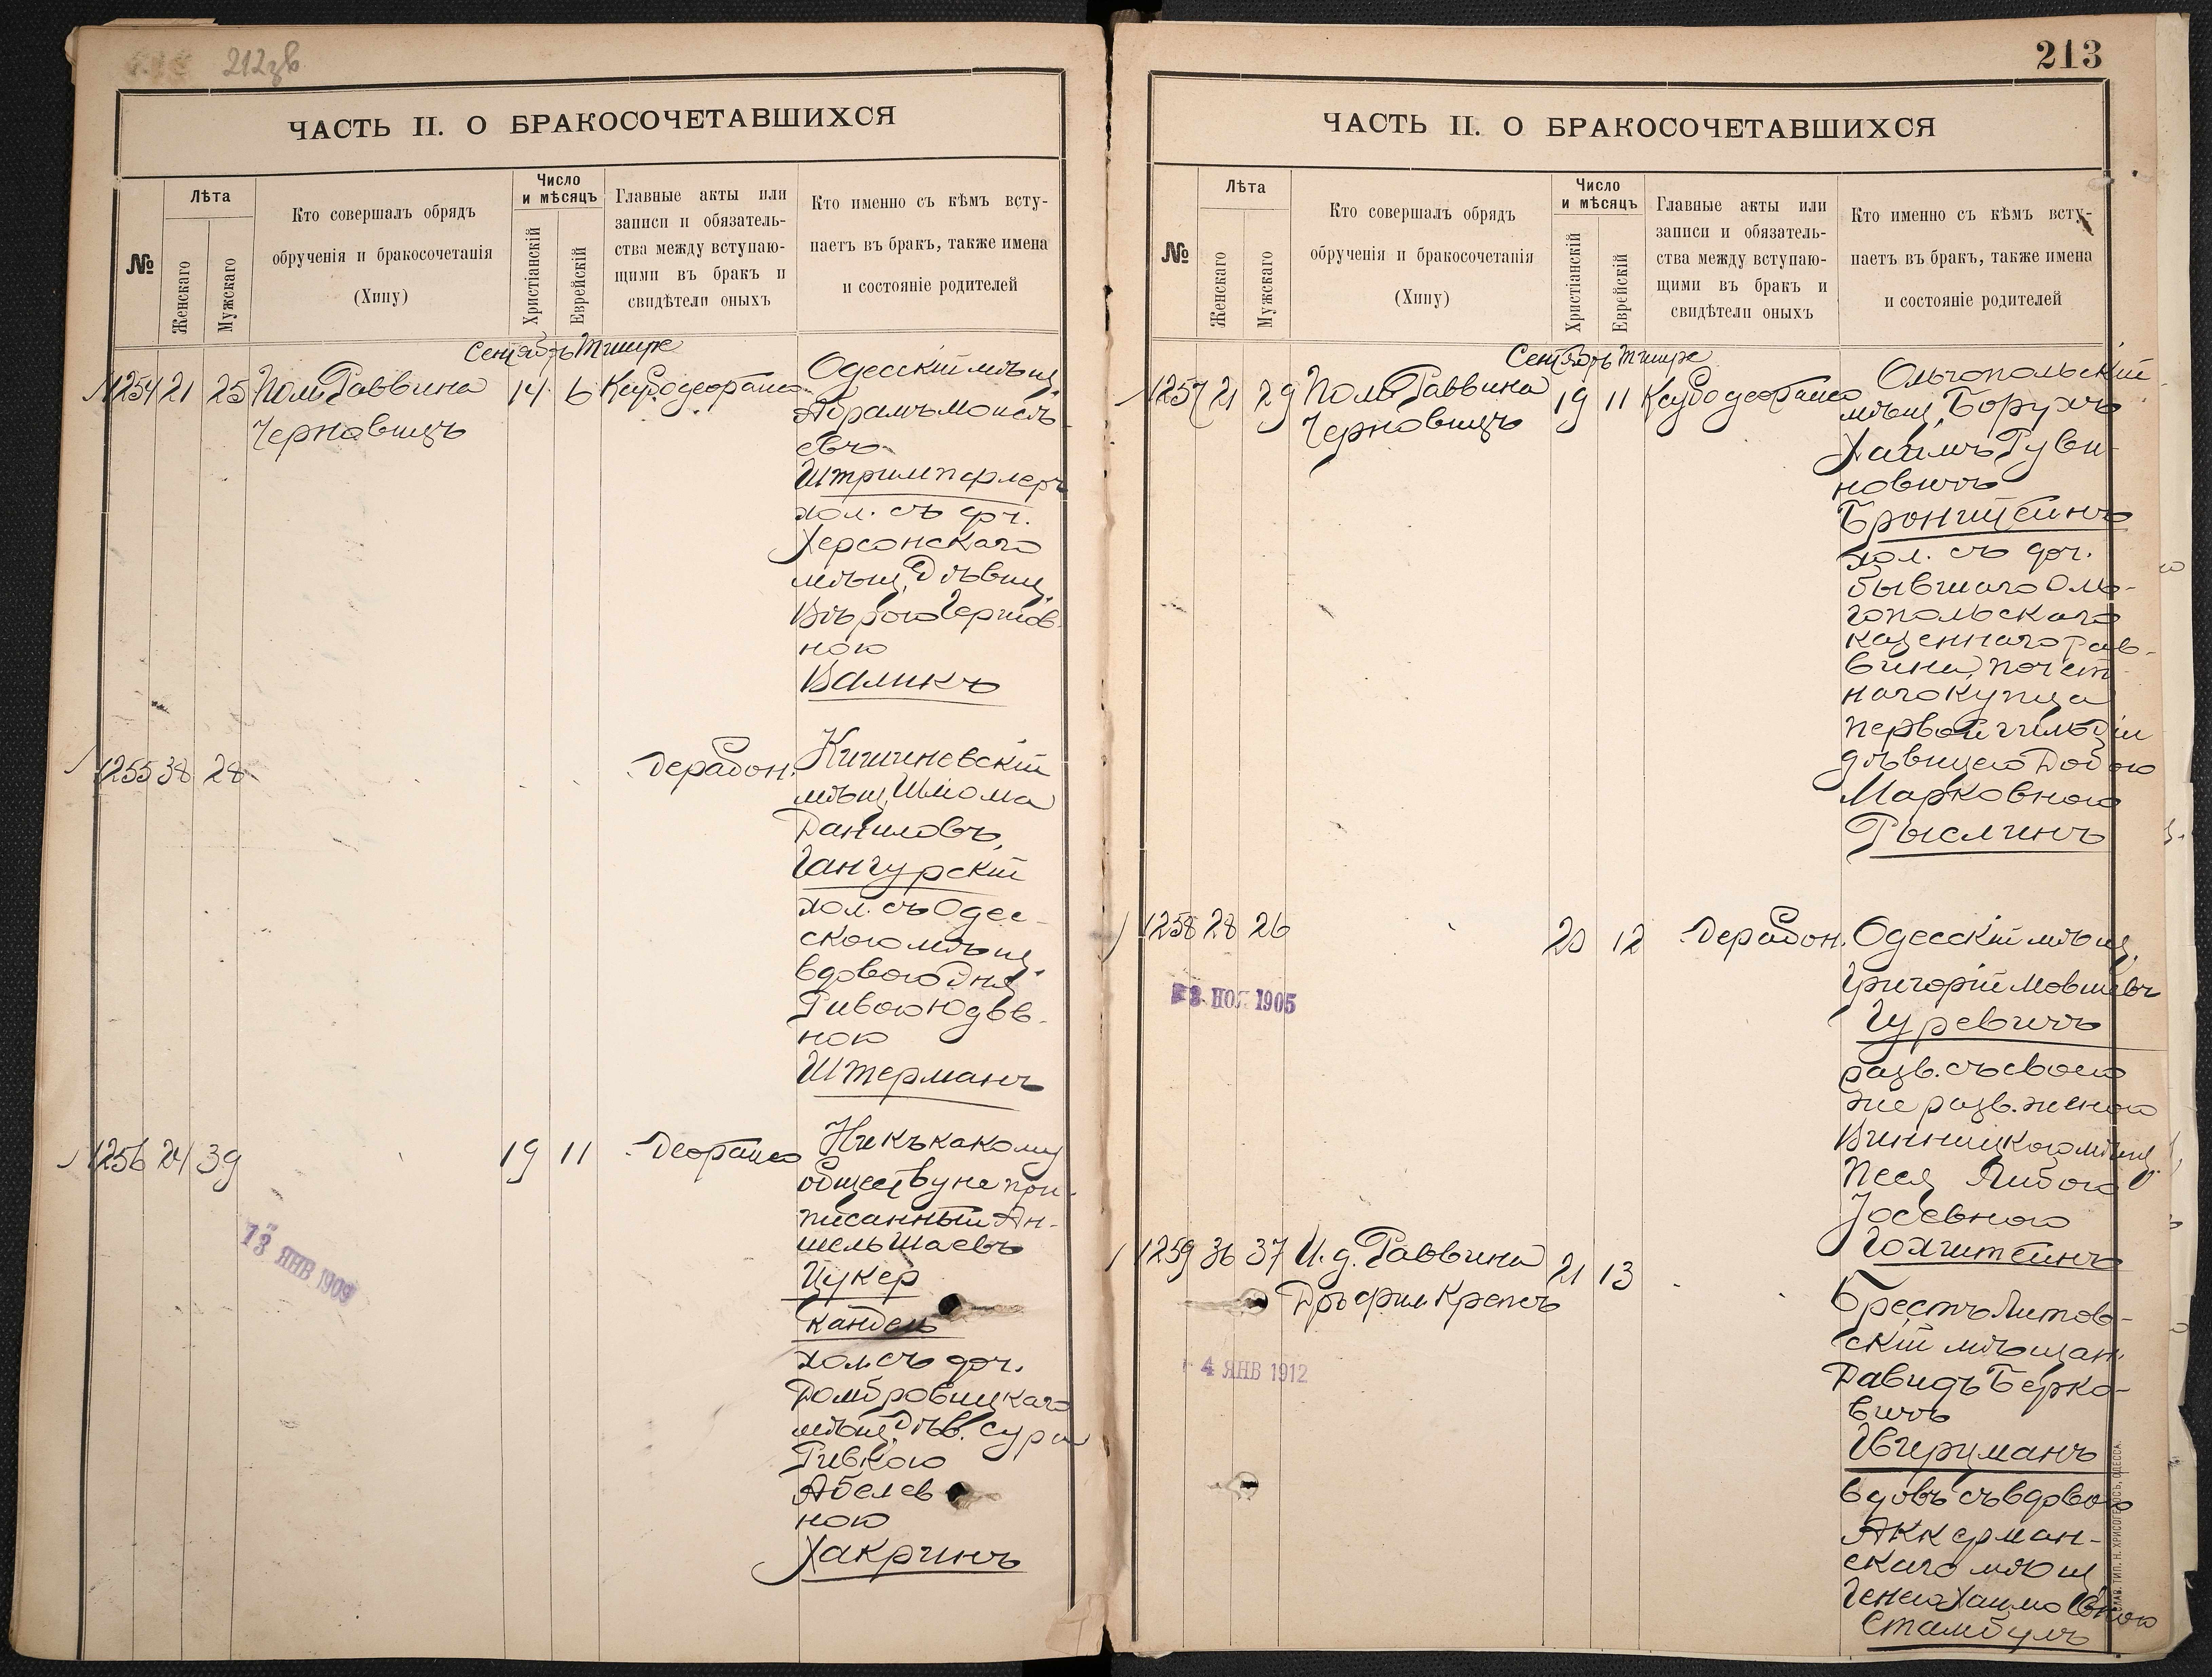 212 зв
ЧАСТЬ II. О БРАКОСОЧЕТАВШИХСЯ
№
Лѣта
Женскаго
Мужскаго
Кто совершалъ обрядъ
обрученія и бракосочетанія
(Хипу)
Число
и мѣсяцъ
Христіанскій
Еврейскій
Главные акты или
записи и обязатель-
ства между вступаю-
щими въ бракъ и
свидѣтели оныхъ
Кто именно съ кѣмъ всту-
паетъ въ бракъ, также имена
и состояніе родителей
Сентябрь Тишре
1254 21 25 Пом. Раввина
Черновицъ
14 6
Одесскій мѣщ.
Абрамъ Моисѣ-
евъ
Штримпфлеръ
хол. съ доч.
Херсонскаго
мѣщ. Дѣвиц.
Вѣрою Гершов-
ною
Валикъ
1255 38 28
Дерабон.
Кишиневскій
мѣщ. Шлома
Даниловъ
Гангурскій
хол. съ Одес-
скою мѣщ.
вдовою Эня
Ривою Юдов-
ною
Штерманъ
1256 24 39
19 11
Деорайсо
Ни къ какому
обществу не при-
писанный Ан-
шель Шаевъ
Цукер
Кандель
хол. съ доч.
Домбровицкаго
мѣщ. Дѣв. Сура
Ривкою
Абелев
ною
Хакринъ
13 ЯНВ 1909
213
ЧАСТЬ II. О БРАКОСОЧЕТАВШИХСЯ
№
Лѣта
Женскаго
Мужскаго
Кто совершалъ обрядъ
обрученія и бракосочетанія
(Хипу)
Число
и мѣсяцъ
Христіанскій
Еврейскій
Главные акты или
записи и обязатель-
ства между вступаю-
щими въ бракъ и
свидѣтели оныхъ
Кто именно съ кѣмъ всту-
паетъ въ бракъ, также имена
и состояніе родителей
Сентябрь Тишре
1257 21 29 Пом. Раввина
Черновицъ
19 11
Ольгопольскій
мѣщ. Борухъ
Хаимъ Руви-
новичъ
Бронштейнъ
хол. съ доч.
бывшаго Оль-
гопольскаго
казеннаго рав-
вина, почет-
наго купца
первой гильдіи
дѣвицею Добою
Марковною
Рыслинъ
1258 28 26
20 12
Дерабон.
Одесскій мѣщ.
Григорій Мовшевъ
Гуревичъ
разв. съ своею
же разв. женою
Винницкою мѣщ.
Песя Либою
Іосевною
Голштейнъ
НОЯ 1905
1259 36 37 И. д. Раввина
Дръ фил. Крепсъ
21 13
Брестъ Литов-
скій мѣщан.
Давидъ Берко-
вичъ
вдовъ съ вдовою
Аккерман-
скаго мѣщ
Генею Хаимовною
Стамбулъ
4 ЯНВ 1912